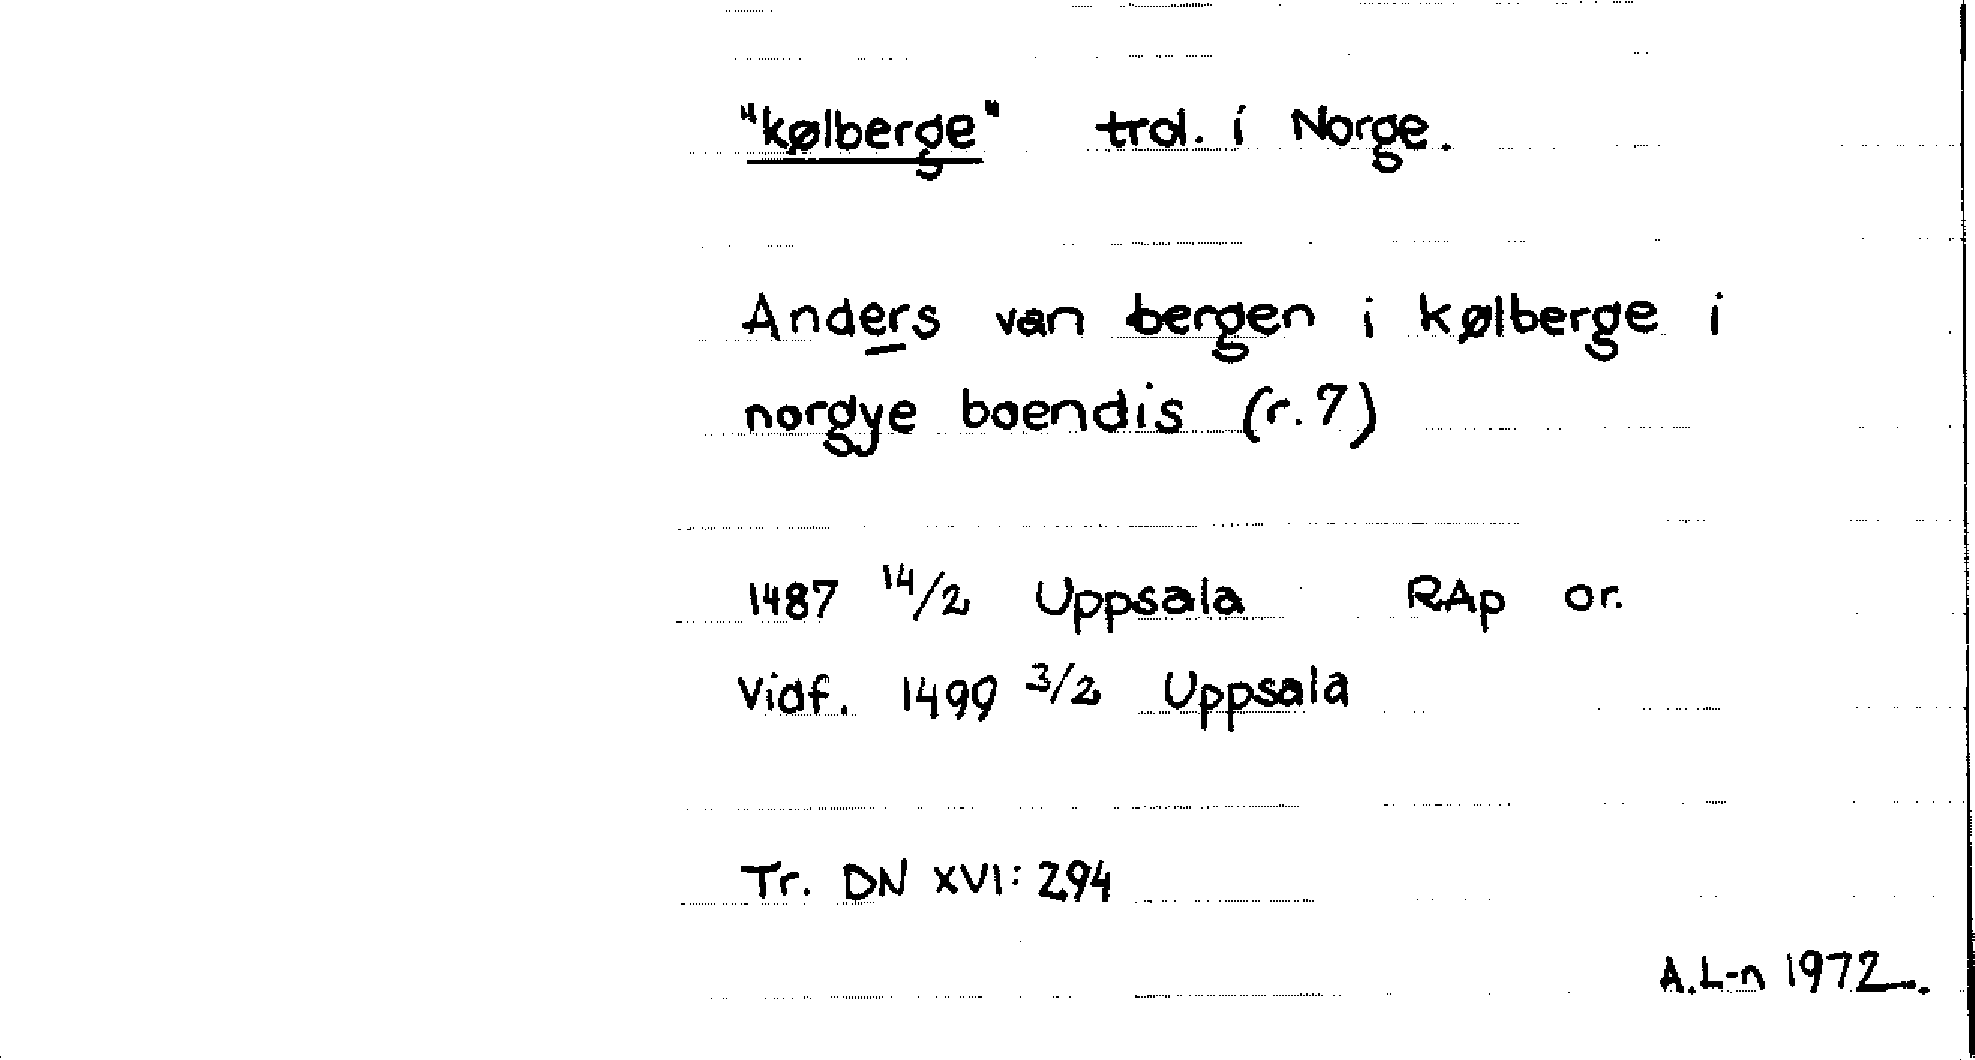 "kølberge" trol. i Norge.
Anders van bergen i kølberge i
norgye boendis (r. 7)
1487 14/2 Uppsala RAp or.
Vidf. 1499 3/2 Uppsala
Tr. DN XVI: 294
A.L-n 1972.